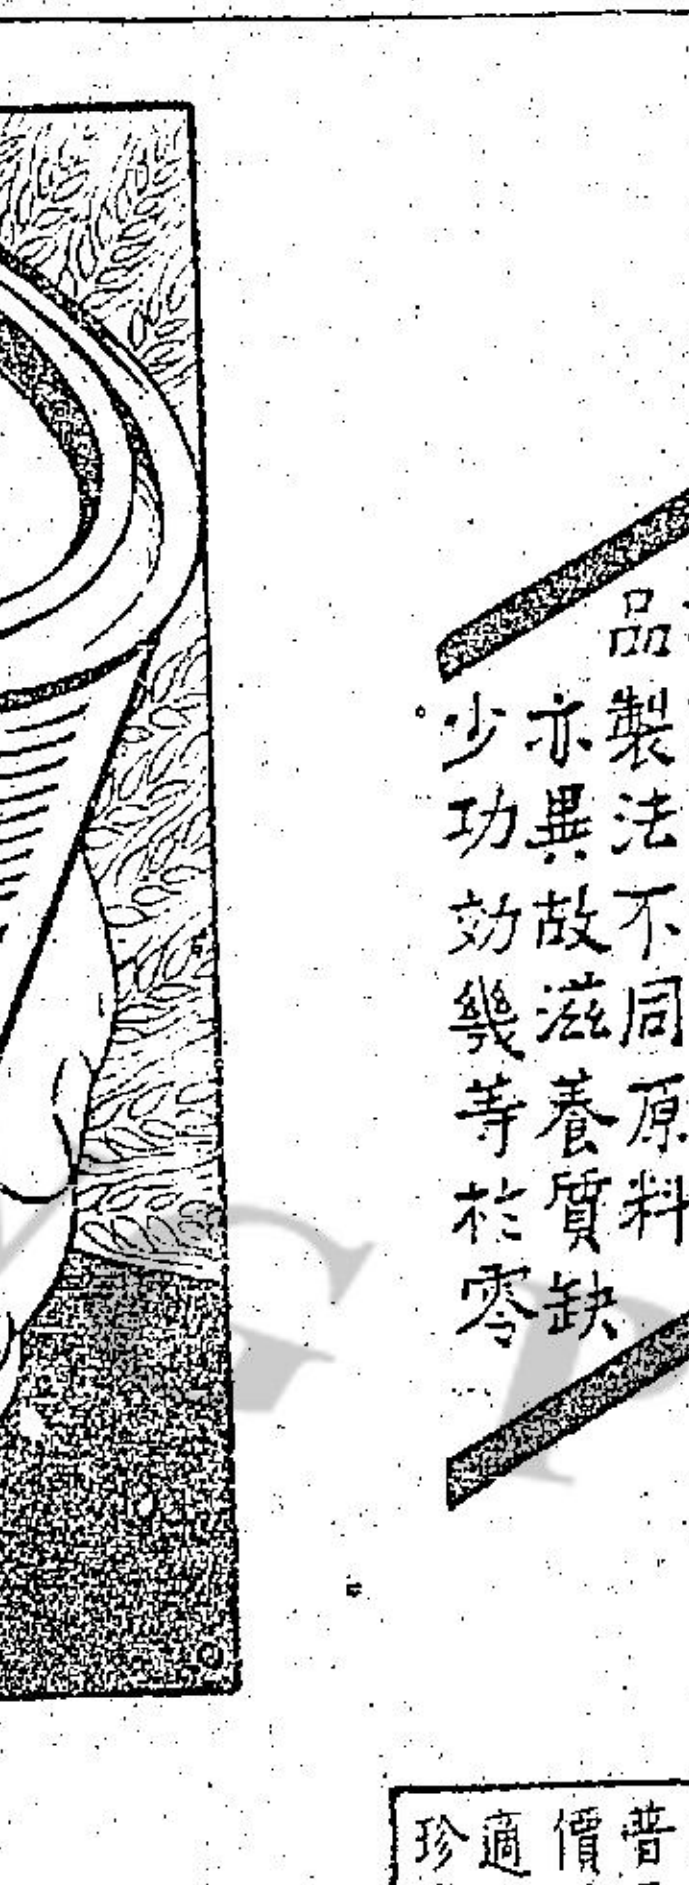 品製法不同原料
亦異故滋養質缺
少功効幾等於零。
普
價
適
珍